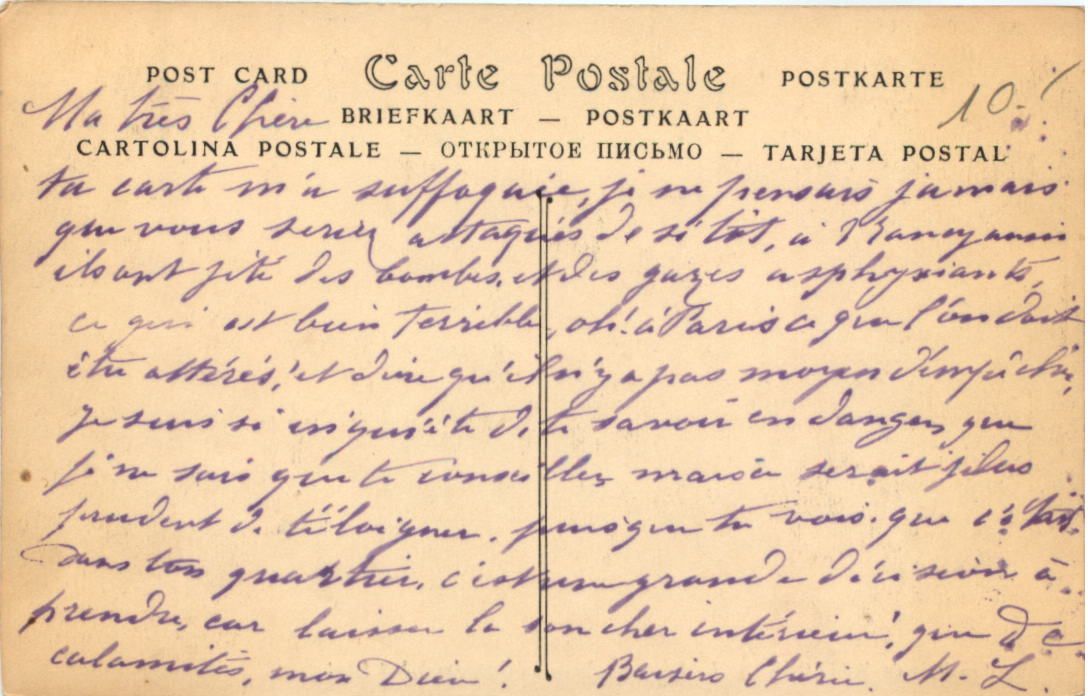 POST CARD Carte Postale POSTKARTE
10.-
Ma très Chère BRIEFKAART — POSTKAART
CARTOLINA POSTALE — ОТКРЫТОЕ ПИСЬМО — TARJETA POSTAL
ta carte m'a suffoquée, je ne pensais jamais
que vous seriez attaqués de si tôt, à Nancy aussi
ils ont jeté des bombes, et des gazes asphyxiants,
ce qui est bien terrible, oh! à Paris ce que l'on doit
être attérés! et dire qu'il n'y a pas moyen d'empêcher,
je suis si inquiète de te savoir en danger, que
je ne sais que te conseiller, mais ce serait plus
prudent de t'éloigner, puisque tu vois que c'est
dans ton quartier, c'est une grande décision à
prendre, car laisser là son cher intérieur!, que de
calamités, mon Dieu! Baisers Chérie. M. L.